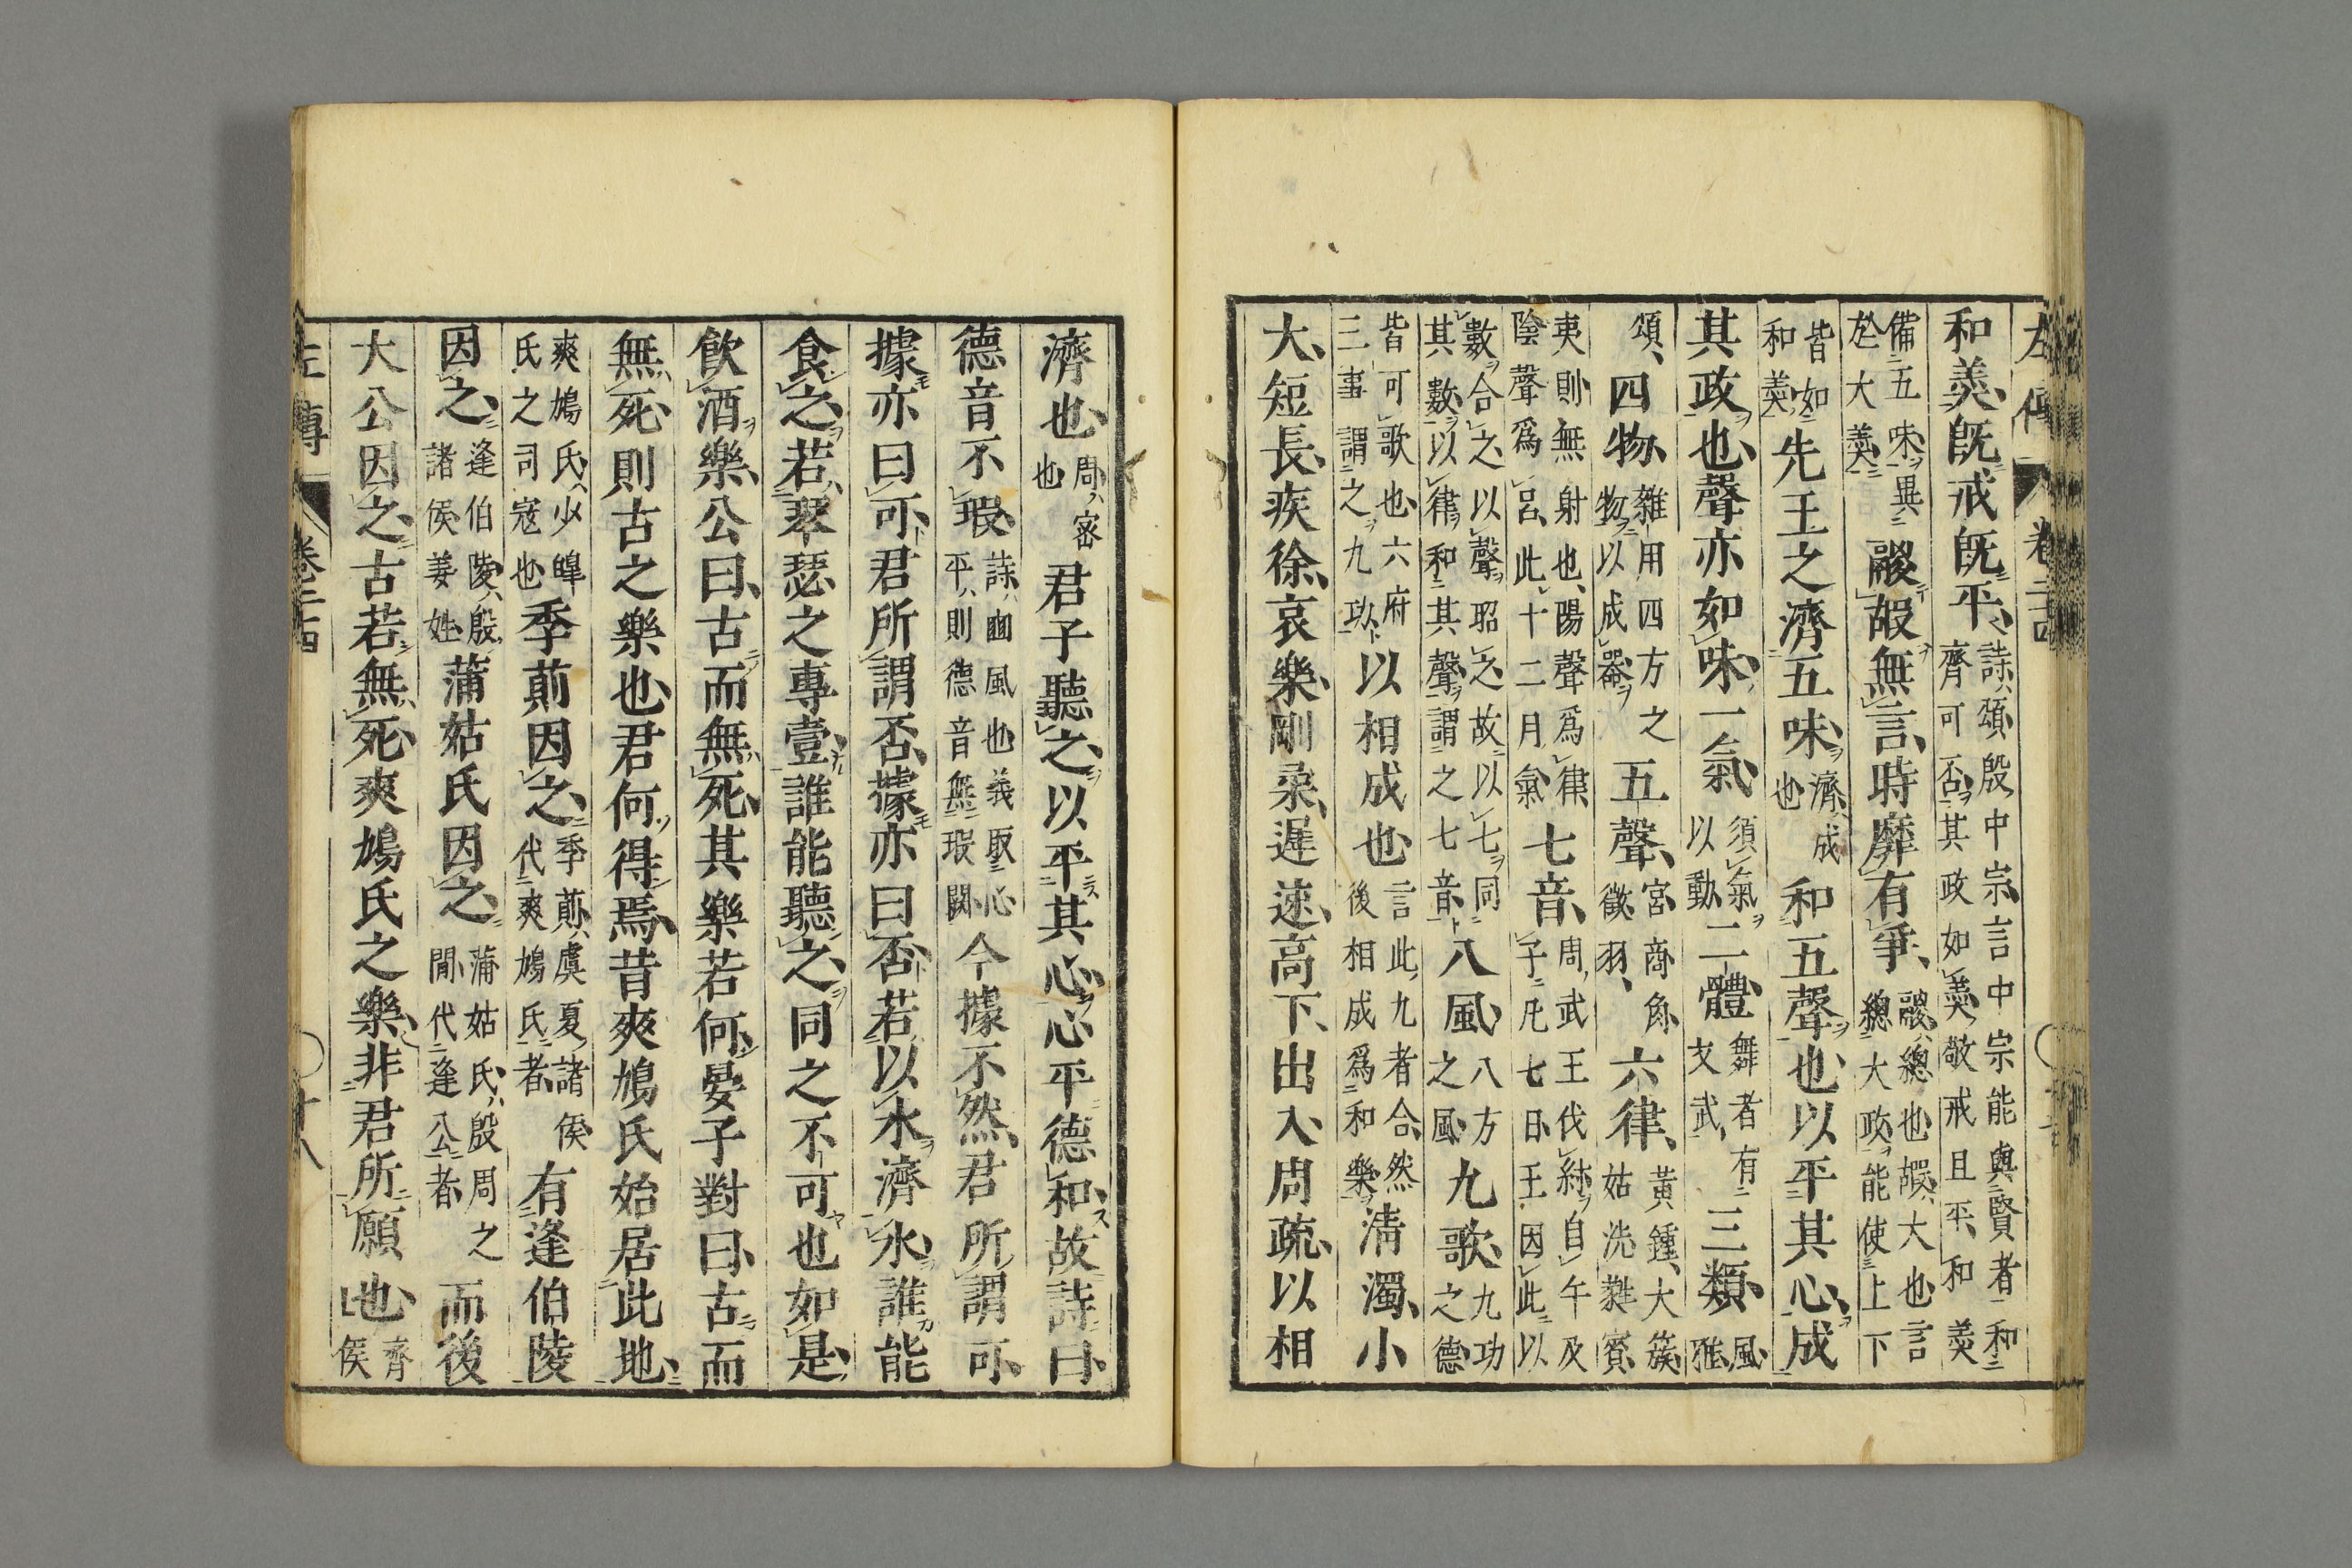 左傳 卷二十四
和羹既戒既平詩頌殷中宗言中宗能與賢者和齊可否其政如羹敬戒且平和羹
備五味異於大羹鬷嘏無言時靡有爭鬷總也嘏大也言總大政能使上下
皆如和羹先王之濟五味濟成也和五聲也以平其心成
其政也聲亦如味一氣須氣以動二體舞者有文武三類風雅
頌四物雜用四方之物以成器五聲宮商角徵羽六律黃鍾大簇姑洗蕤賓
夷則無射也陽聲爲律陰聲爲呂此十二月氣七音周武王伐紂自午及子凡七日王因此以
數合之以聲昭之故以七同其數以律和其聲謂之七音八風八方之風九歌九功之德
皆可歌也六府三事謂之九功以相成也言此九者合然後相成爲和樂清濁小
大短長疾徐哀樂剛柔遲速高下出入周疏以相
濟也周密也君子聽之以平其心心平德和故詩曰
德音不瑕詩豳風也義取心平則德音無瑕闕今據不然君所謂可
據亦曰可君所謂否據亦曰否若以水濟水誰能
食之若琴瑟之專壹誰能聽之同之不可也如是
飲酒樂公曰古而無死其樂若何晏子對曰古而
無死則古之樂也君何得焉昔爽鳩氏始居此地
爽鳩氏少皞氏之司寇也季萴因之季萴虞夏諸侯代爽鳩氏者有逢伯陵
因之逢伯陵殷諸侯姜姓蒲姑氏因之蒲姑氏殷周之閒代逢公者而後
大公因之古若無死爽鳩氏之樂非君所願也齊侯
左傳 卷二十四 十八